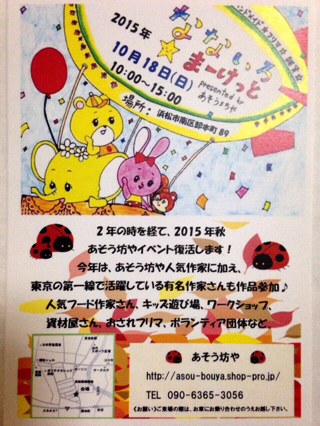 ハンドメイド☆フリマ☆雑貨☆
なないろ
☆まーけっと
presented by
あそうぼうや
2015年
10月18日(日)
10:00〜15:00
場所：浜松市南区卸本町89
2年の時を経て、2015年秋
あそう坊やイベント復活します！
今年は、あそう坊や人気作家に加え、
東京の第一線で活躍している有名作家さんも作品参加♪
人気フード作家さん、キッズ遊び場、ワークショップ、
資材屋さん、おされフリマ、ボランティア団体など。
会場
あそう坊や
http://asou-bouya.shop-pro.jp/
TEL 090-6365-3056
《お願い》ご来場の際は、お車にお乗り合わせのうえお越し下さい。